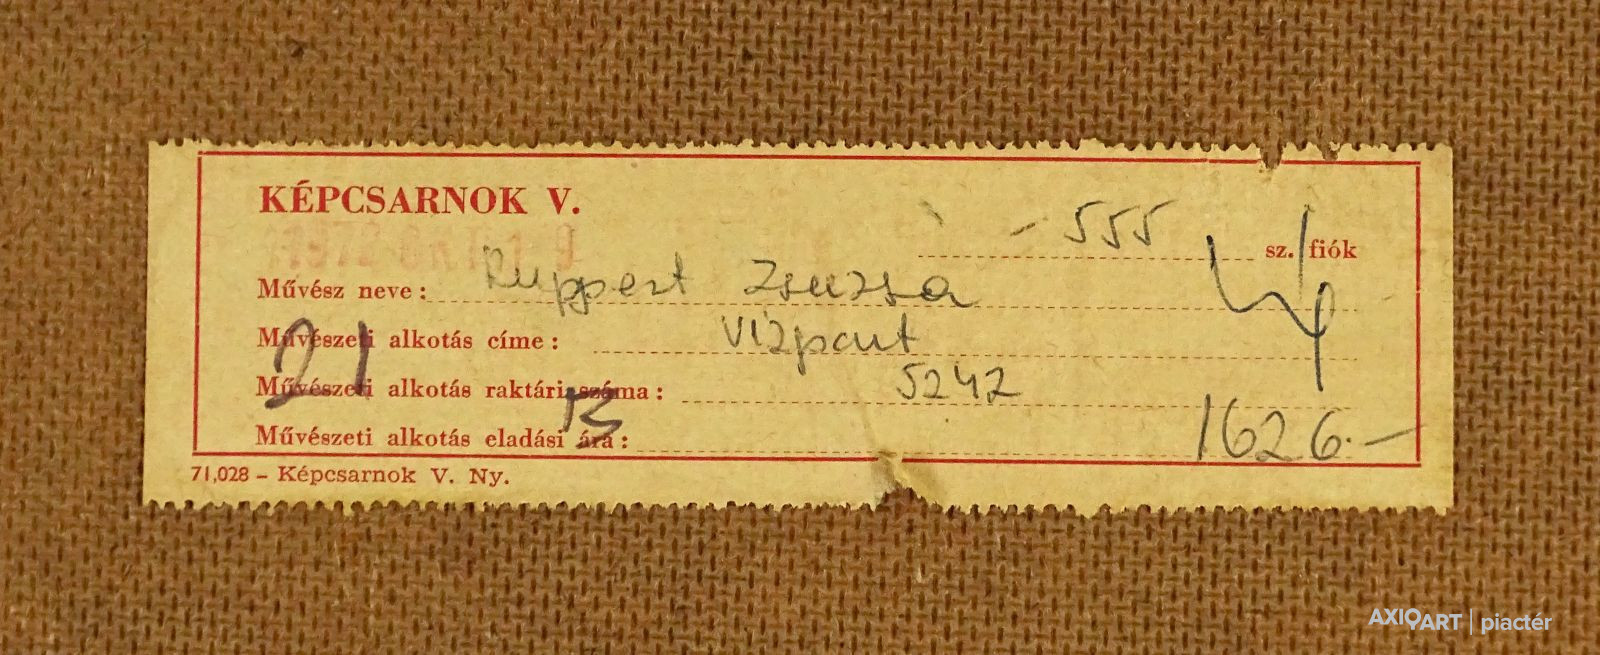 KÉPCSARNOK V.
- 555 sz. fiók
Művész neve: Ruppert Zsuzsa
Művészeti alkotás címe: Vízpart
Művészeti alkotás raktári száma: 5242
Művészeti alkotás eladási ára: 1626.-
21
71,028 – Képcsarnok V. Ny.
AXIOART | piactér